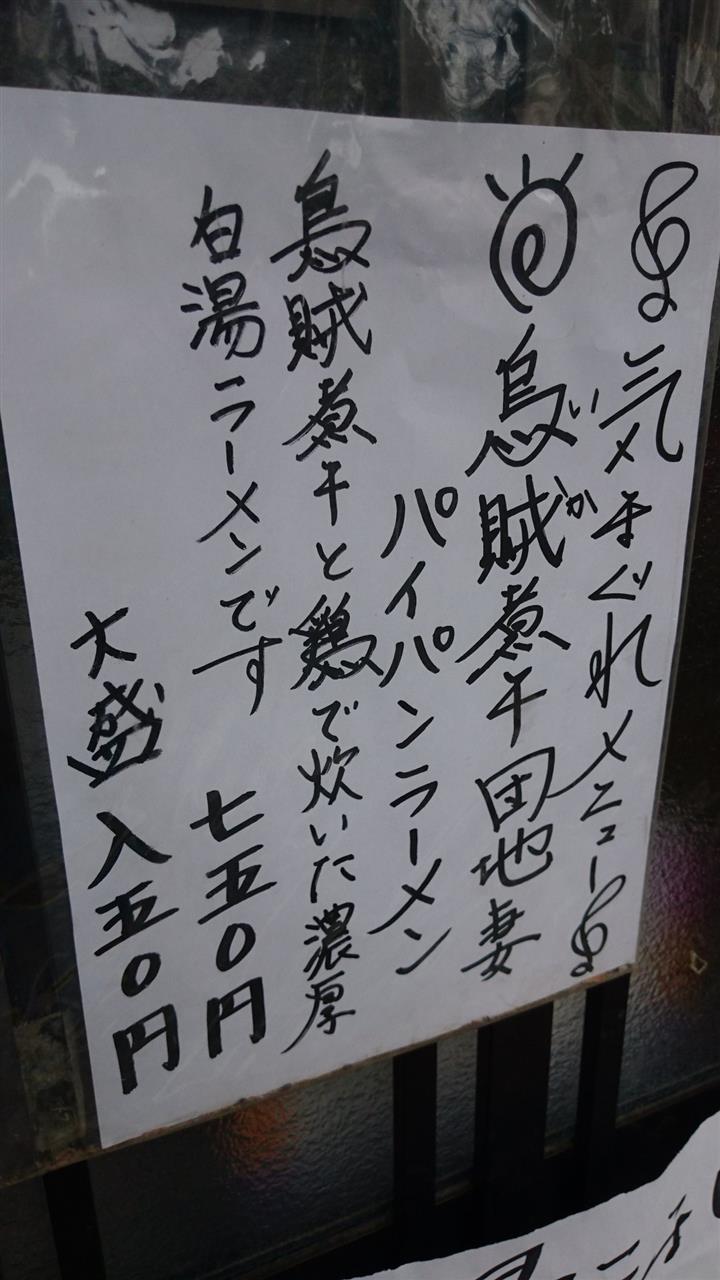 気まぐれメニュー
烏賊煮干団地妻
いか
パイパンラーメン
烏賊煮干と鶏で炊いた濃厚
白湯ラーメンです 七五〇円
大盛 八五〇円